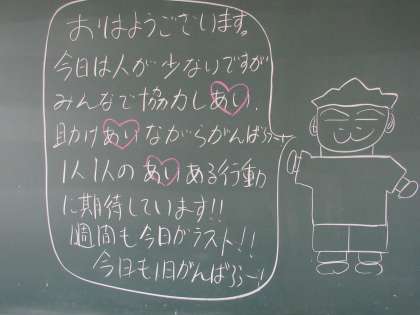 おはようございます。
今日は人が少ないですが
みんなで協力しあい、
助けあいながらがんばろー
1人1人のあいある行動
に期待しています!!
週間も今日がラスト!!
今日も1日がんばろー!